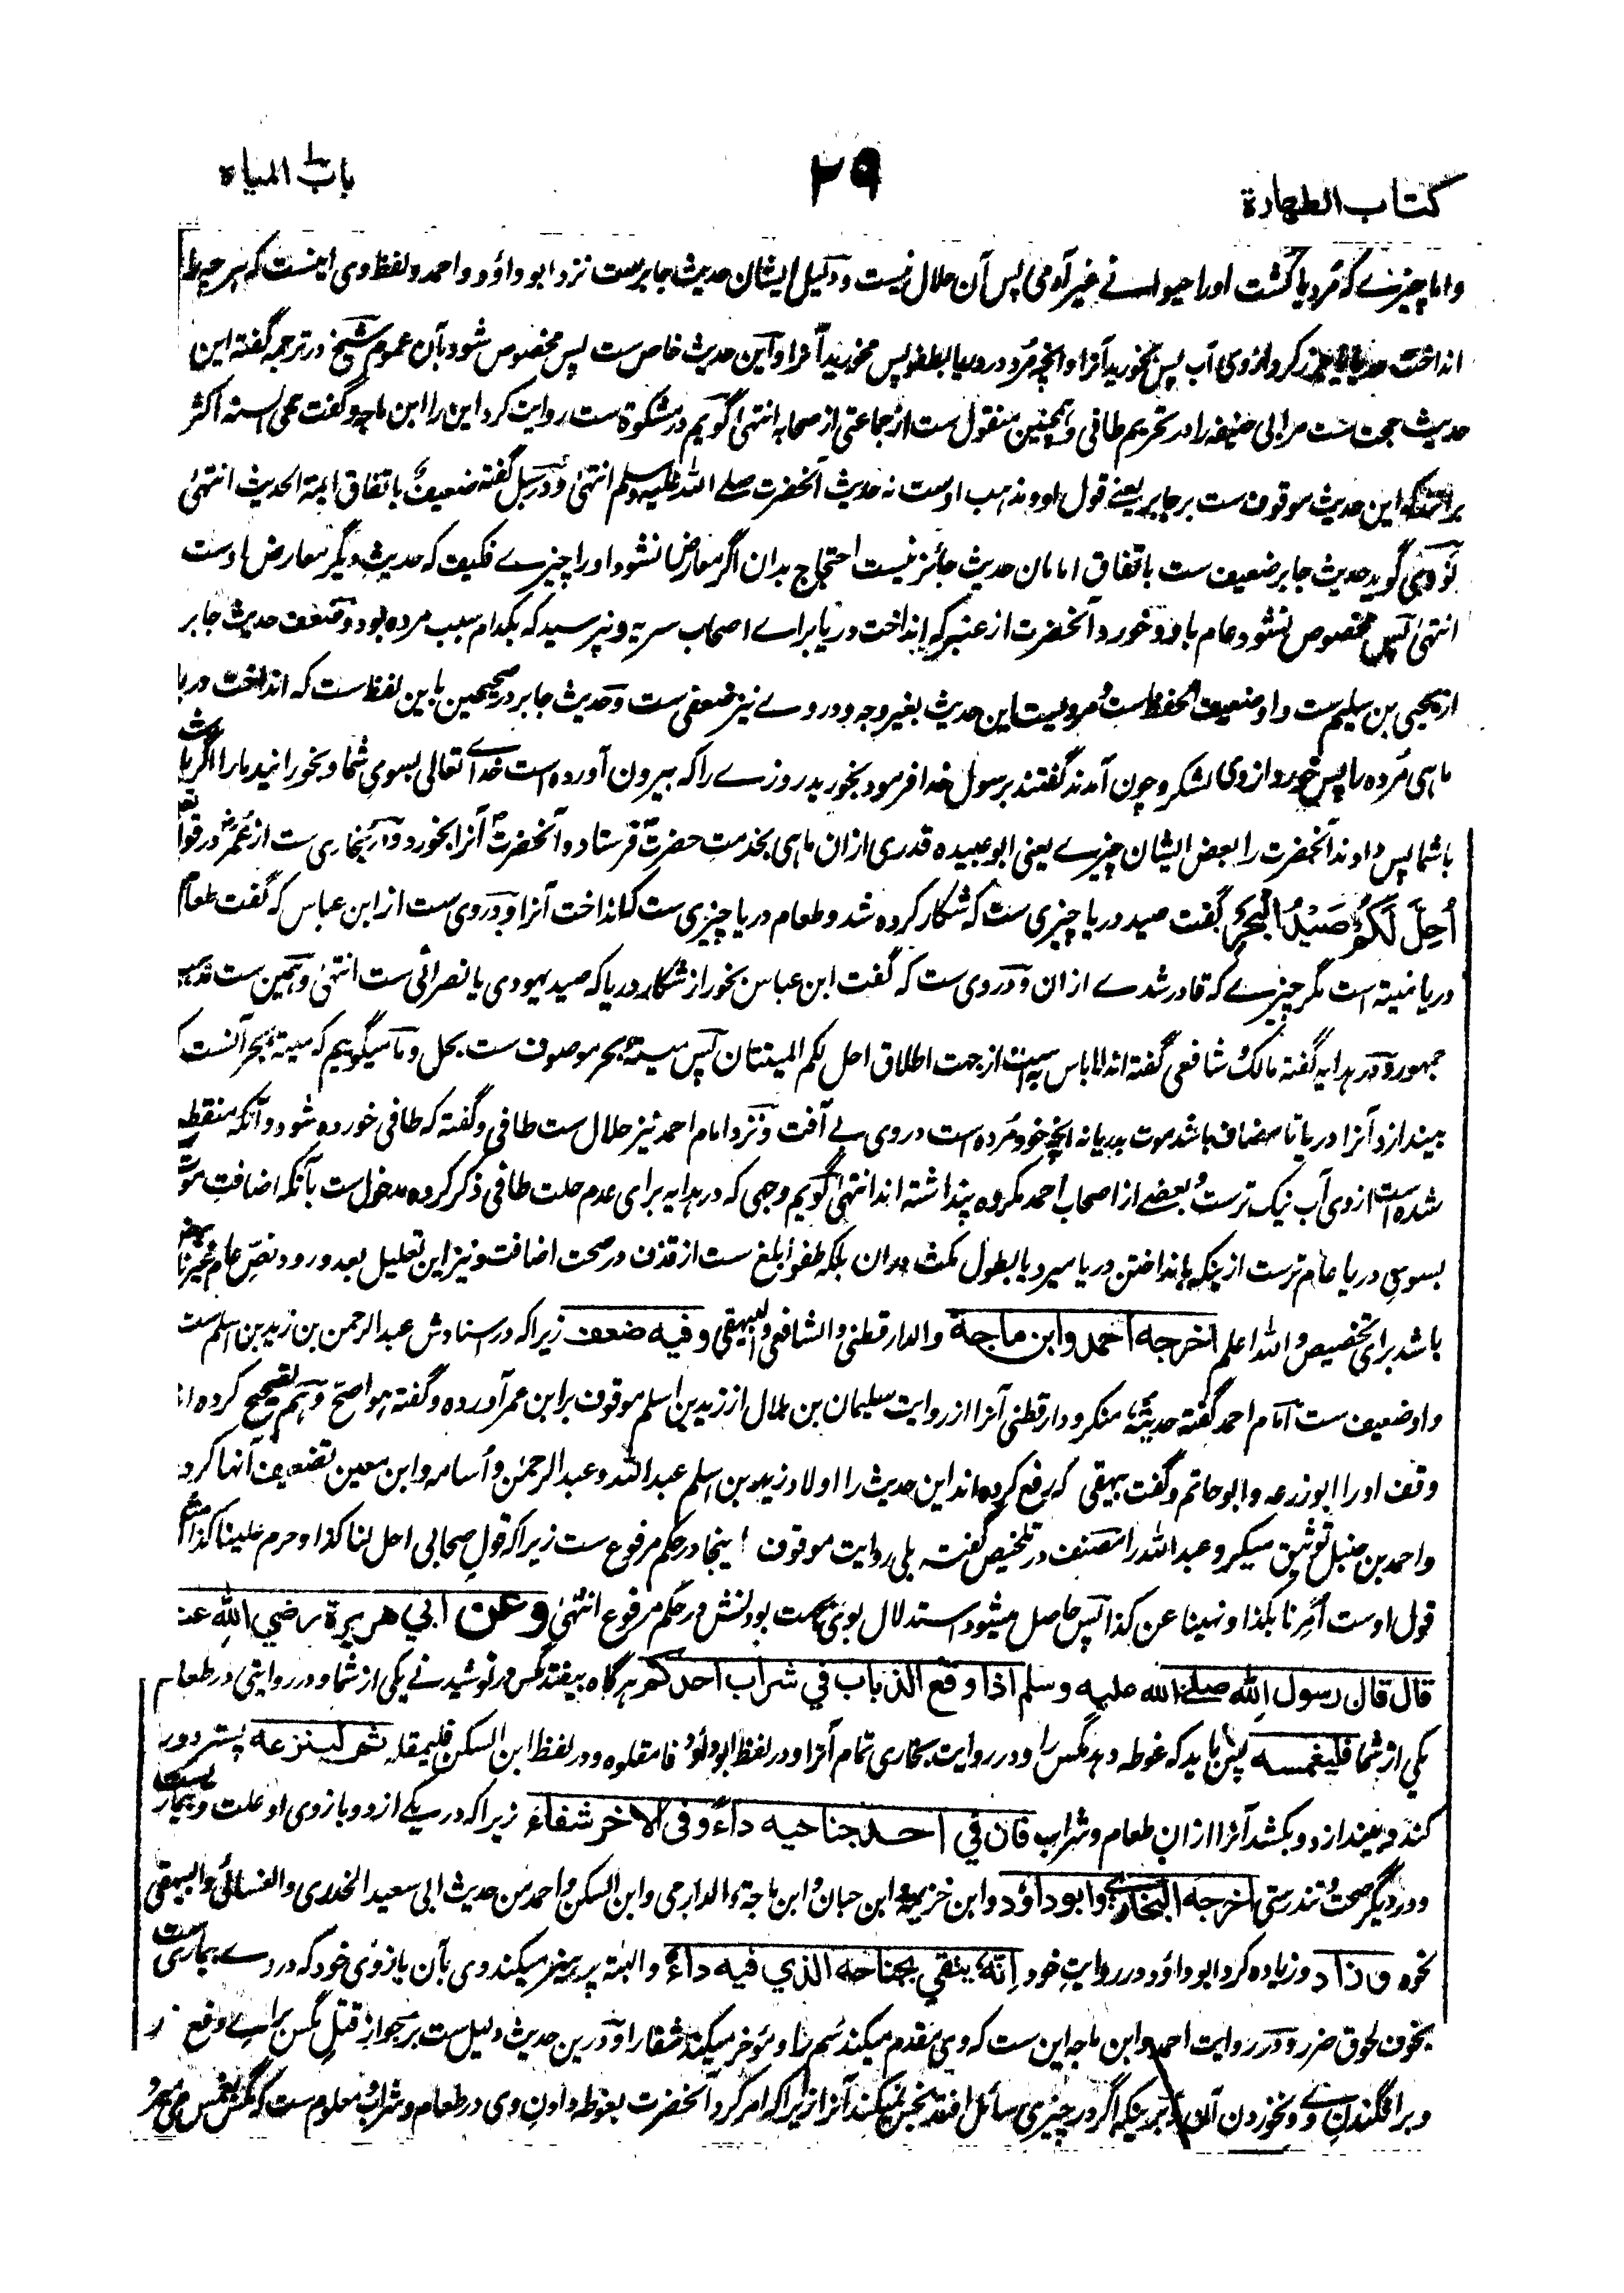 كتاب الطهارة
٢٩
باب المياه
واما چیزے که مرد یا گشت اورا حیوانے غیر آدمی پس آن حلال نیست و دلیل ایشان حدیث جابرست نزد ابو داؤد و احمد و لفظ وی اینست که هر چه
انداخت دریا یا جزر کرد ازوی آب پس بخورید آنرا و انچه مرد در دریا بطفو پس مخورید آنرا و این حدیث خاص ست پس مخصوص شود بآن عموم شیخ در ترجمه گفته این
حدیث حجت ست مر ابی حنیفه را در تحریم طافی و همچنین منقول ست از جماعتی از صحابه انتهی گویم در مشکوة ست روایت کرد این را ابن ماجه و گفت محی السنه اکثر
برانند که این حدیث موقوف ست بر جابر یعنے قول او و مذهب اوست نه حدیث آنحضرت صلے الله علیه وسلم انتهی و در سبل گفته ضعیف باتفاق ایمة الحدیث انتهی
نووی گوید حدیث جابر ضعیف ست باتفاق امامان حدیث جائز نیست احتجاج بدان اگر معارض نشود اورا چیزے فکیف که حدیث دیگر معارض اوست
انتهی پس مخصوص نشود عام باو و خورد آنحضرت از عنبر که انداخت دریا براے اصحاب سریه و نپرسید که بکدام سبب مرده بود و ضعف حدیث جابر
از یحیی بن سلیم ست و او ضعیف الحفظ ست و مرویست این حدیث بغیر وجه و در وے نیز ضعفی ست و حدیث جابر در صحیحین باین لفظ ست که انداخت دریا
ماهی مرده را پس خورد ازوی لشکر و چون آمدند گفتند برسول خدا فرمود بخورید روزے را که بیرون آورده است خداے تعالی بسوی شما و بخورانید مارا اگر باشد
باشما پس دادند آنحضرت را بعض ایشان چیزے یعنی ابو عبیده قدری ازان ماهی بخدمت حضرت فرستاد و آنحضرت آنرا بخورد و در بخاری ست از عمر در قوله
أُحِلَّ لَكُمْ صَيْدُ الْبَحْرِ گفت صید دریا چیزی ست که شکار کرده شد و طعام دریا چیزی ست که انداخت آنرا و در وی ست از ابن عباس که گفت طعام
دریا میته است مگر چیزے که قادر شدے ازان و در وی ست که گفت ابن عباس بخور از شکار دریا که صید یهودی یا نصرانی ست انتهی و همین ست مذهب
جمهور و در هدایه گفته مالک و شافعی گفته اند لا باس به ست از جهت اطلاق احل لکم المیتتان پس میته بحر موصوف ست بحل و ما میگوییم که میته بحر آنست که
بیندازد آنرا دریا تا مضاف باشد موت بدریا نه انچه خود مرده است در وی بے آفت و نزد امام احمد نیز حلال ست طافی و گفته که طافی خورده شود و آنکه منقطع
شده است ازوی آب نیک ترست و بعضے از اصحاب احمد مکروه پنداشته اند انتهی گویم وجهی که در هدایه برای عدم حلت طافی ذکر کرده مدخول ست بآنکه اضافت موت
بسوی دریا عام ترست ازینکه بانداختن دریا میرد یا بطول مکث دران بلکه طفو ابلغ ست از قذف در صحت اضافت و نیز این تعلیل بعد ورود نص عام
باشد برای تخصیص و الله اعلم اخرجه احمد وابن ماجة والدارقطنی والشافعی والبیهقی وفیه ضعف زیرا که در اسنادش عبد الرحمن بن زید بن اسلم ست
و او ضعیف ست امام احمد گفته حدیثه منکر و دارقطنی آنرا از روایت سلیمان بن بلال از زید بن اسلم موقوف بر ابن عمر آورده و گفته هو اصح و هم تصحیح کرده
وقف اورا ابو زرعه و ابو حاتم و گفت بیهقی که رفع کرده اند این حدیث را اولاد زید بن اسلم عبد الله و عبد الرحمن و أسامه و ابن معین تضعیف آنها کرده
و احمد بن حنبل توثیق میکرد عبد الله را مصنف در تلخیص گفته بلی روایت موقوف اینجا در حکم مرفوع ست زیرا که قول صحابی احل لنا کذا و حرم علینا کذا مثل
قول اوست أُمِرنا بکذا و نهینا عن کذا پس حاصل میشود استدلال بوی بجهت بودنش در حکم مرفوع انتهی وعن ابي هريرة رضي الله عنه
قال قال رسول الله صلے الله عليه وسلم اذا وقع الذباب في شراب احدكم هرگاه بیفتد مگس در نوشیدنے یکی از شما و در روایتی در طعام
یکی از شما فليغمسه پس باید که غوطه دهد مگس را و در روایت بخاری تمام آنرا و در لفظ ابو داؤد فامقلوه و در لفظ ابن السکن فلیمقله ثم لينزعه پستر دور
کند و بیندازد و بکشد آنرا ازان طعام و شراب فان في احد جناحيه داءً وفى الاخر شفاء زیرا که در یکے از دو بازوی او علت و بیماریست
و در دیگر صحت و تندرستی اخرجه البخاري وابو داؤد وابن خزیمه وابن حبان وابن ماجه والدارمی وابن السکن واحمد من حدیث ابی سعید الخدری والنسائی والبیهقی
نحوه وزاد و زیاده کرد ابو داؤد در روایت خود انه يتقي بجناحه الذي فيه داءٌ و البته پرهیز میکند وی بآن بازوی خود که در وے بیماری ست
بخوف لحوق ضرر و در روایت احمد و ابن ماجه این ست که وی مقدم میکند سم را و مؤخر میکند شفا را و درین حدیث دلیل ست بر جواز قتل مگس براے دفع
و بر افگندن وے و نخوردن آن و برینکه اگر در چیزی سائل افتد نجس نمیکند آنرا زیرا که امر کرد آنحضرت بغوطه دادن وی در طعام و شراب و معلوم ست که مگس بغمس می میرد